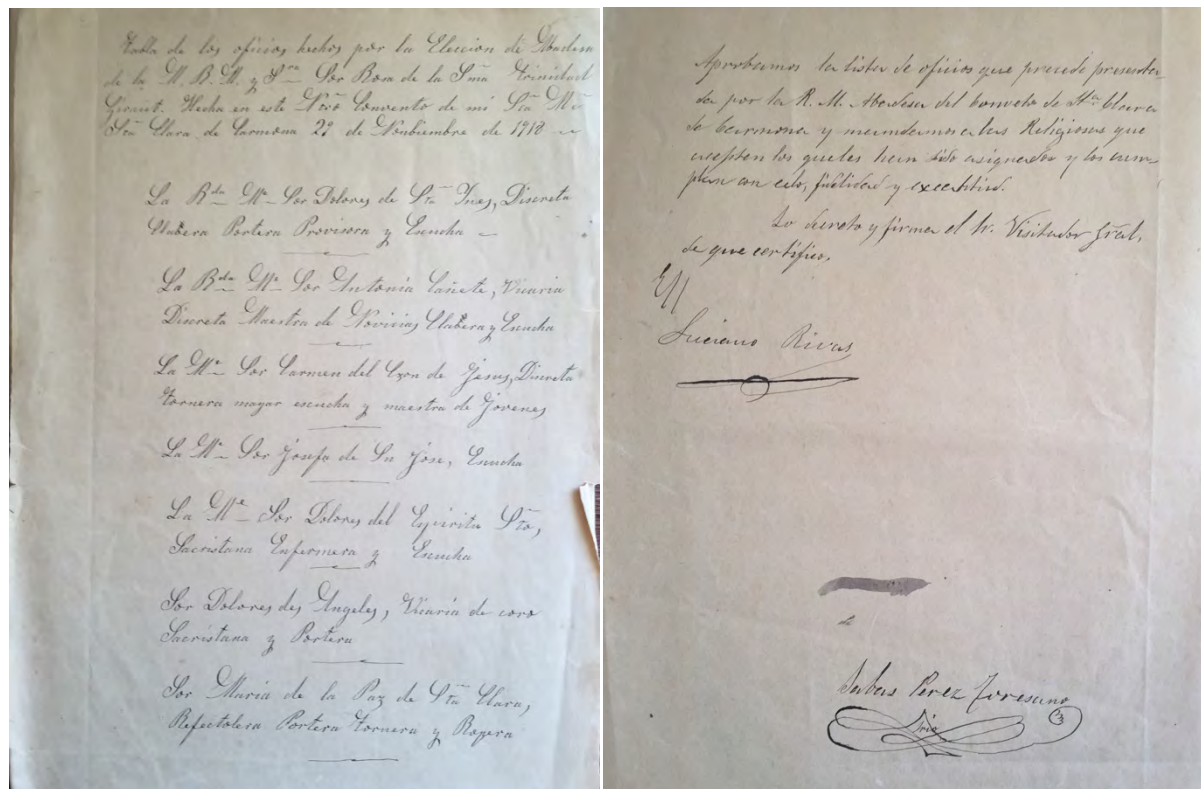 Tabla de los oficios hechos por la Eleccion de Abadesa
de la M. R. M. y Sra Sor Rosa de la Sma Trinidad
Hecha en este Nro Convento de mi Sta Me
Sta Clara de Carmona 29 de Nobiembre de 1918
La Rda Me Sor Dolores de Sta Ines, Discreta
Clabera Portera Provisora y Escucha
La Rda Me Sor Antonia Cañete, Vicaria
Discreta Maestra de Novicias Clabera y Escucha
La Me Sor Carmen del Czon de Jesus, Discreta
tornera mayor escucha y maestra de Jovenes
La Me Sor Josefa de Sn Jose, Escucha
La Me Sor Dolores del Espiritu Sto,
Sacristana Enfermera y Escucha
Sor Dolores des Angeles, Vicaria de coro
Sacristana y Portera
Sor Maria de la Paz de Sta Clara,
Refectolera Portera tornera y Ropera
Aprobamos la lista de oficios que precede presenta-
da por la R. M. Abadesa del convento de Sta Clara
de Carmona y mandamos a las Religiosas que
acepten los que les han sido asignados y los cum-
plan con celo, fidelidad y exactitud.
Lo decreto y firma el Sr. Visitador Gral.
de que certifico,
Luciano Rivas
de
Sabas Perez Toresano
Srio